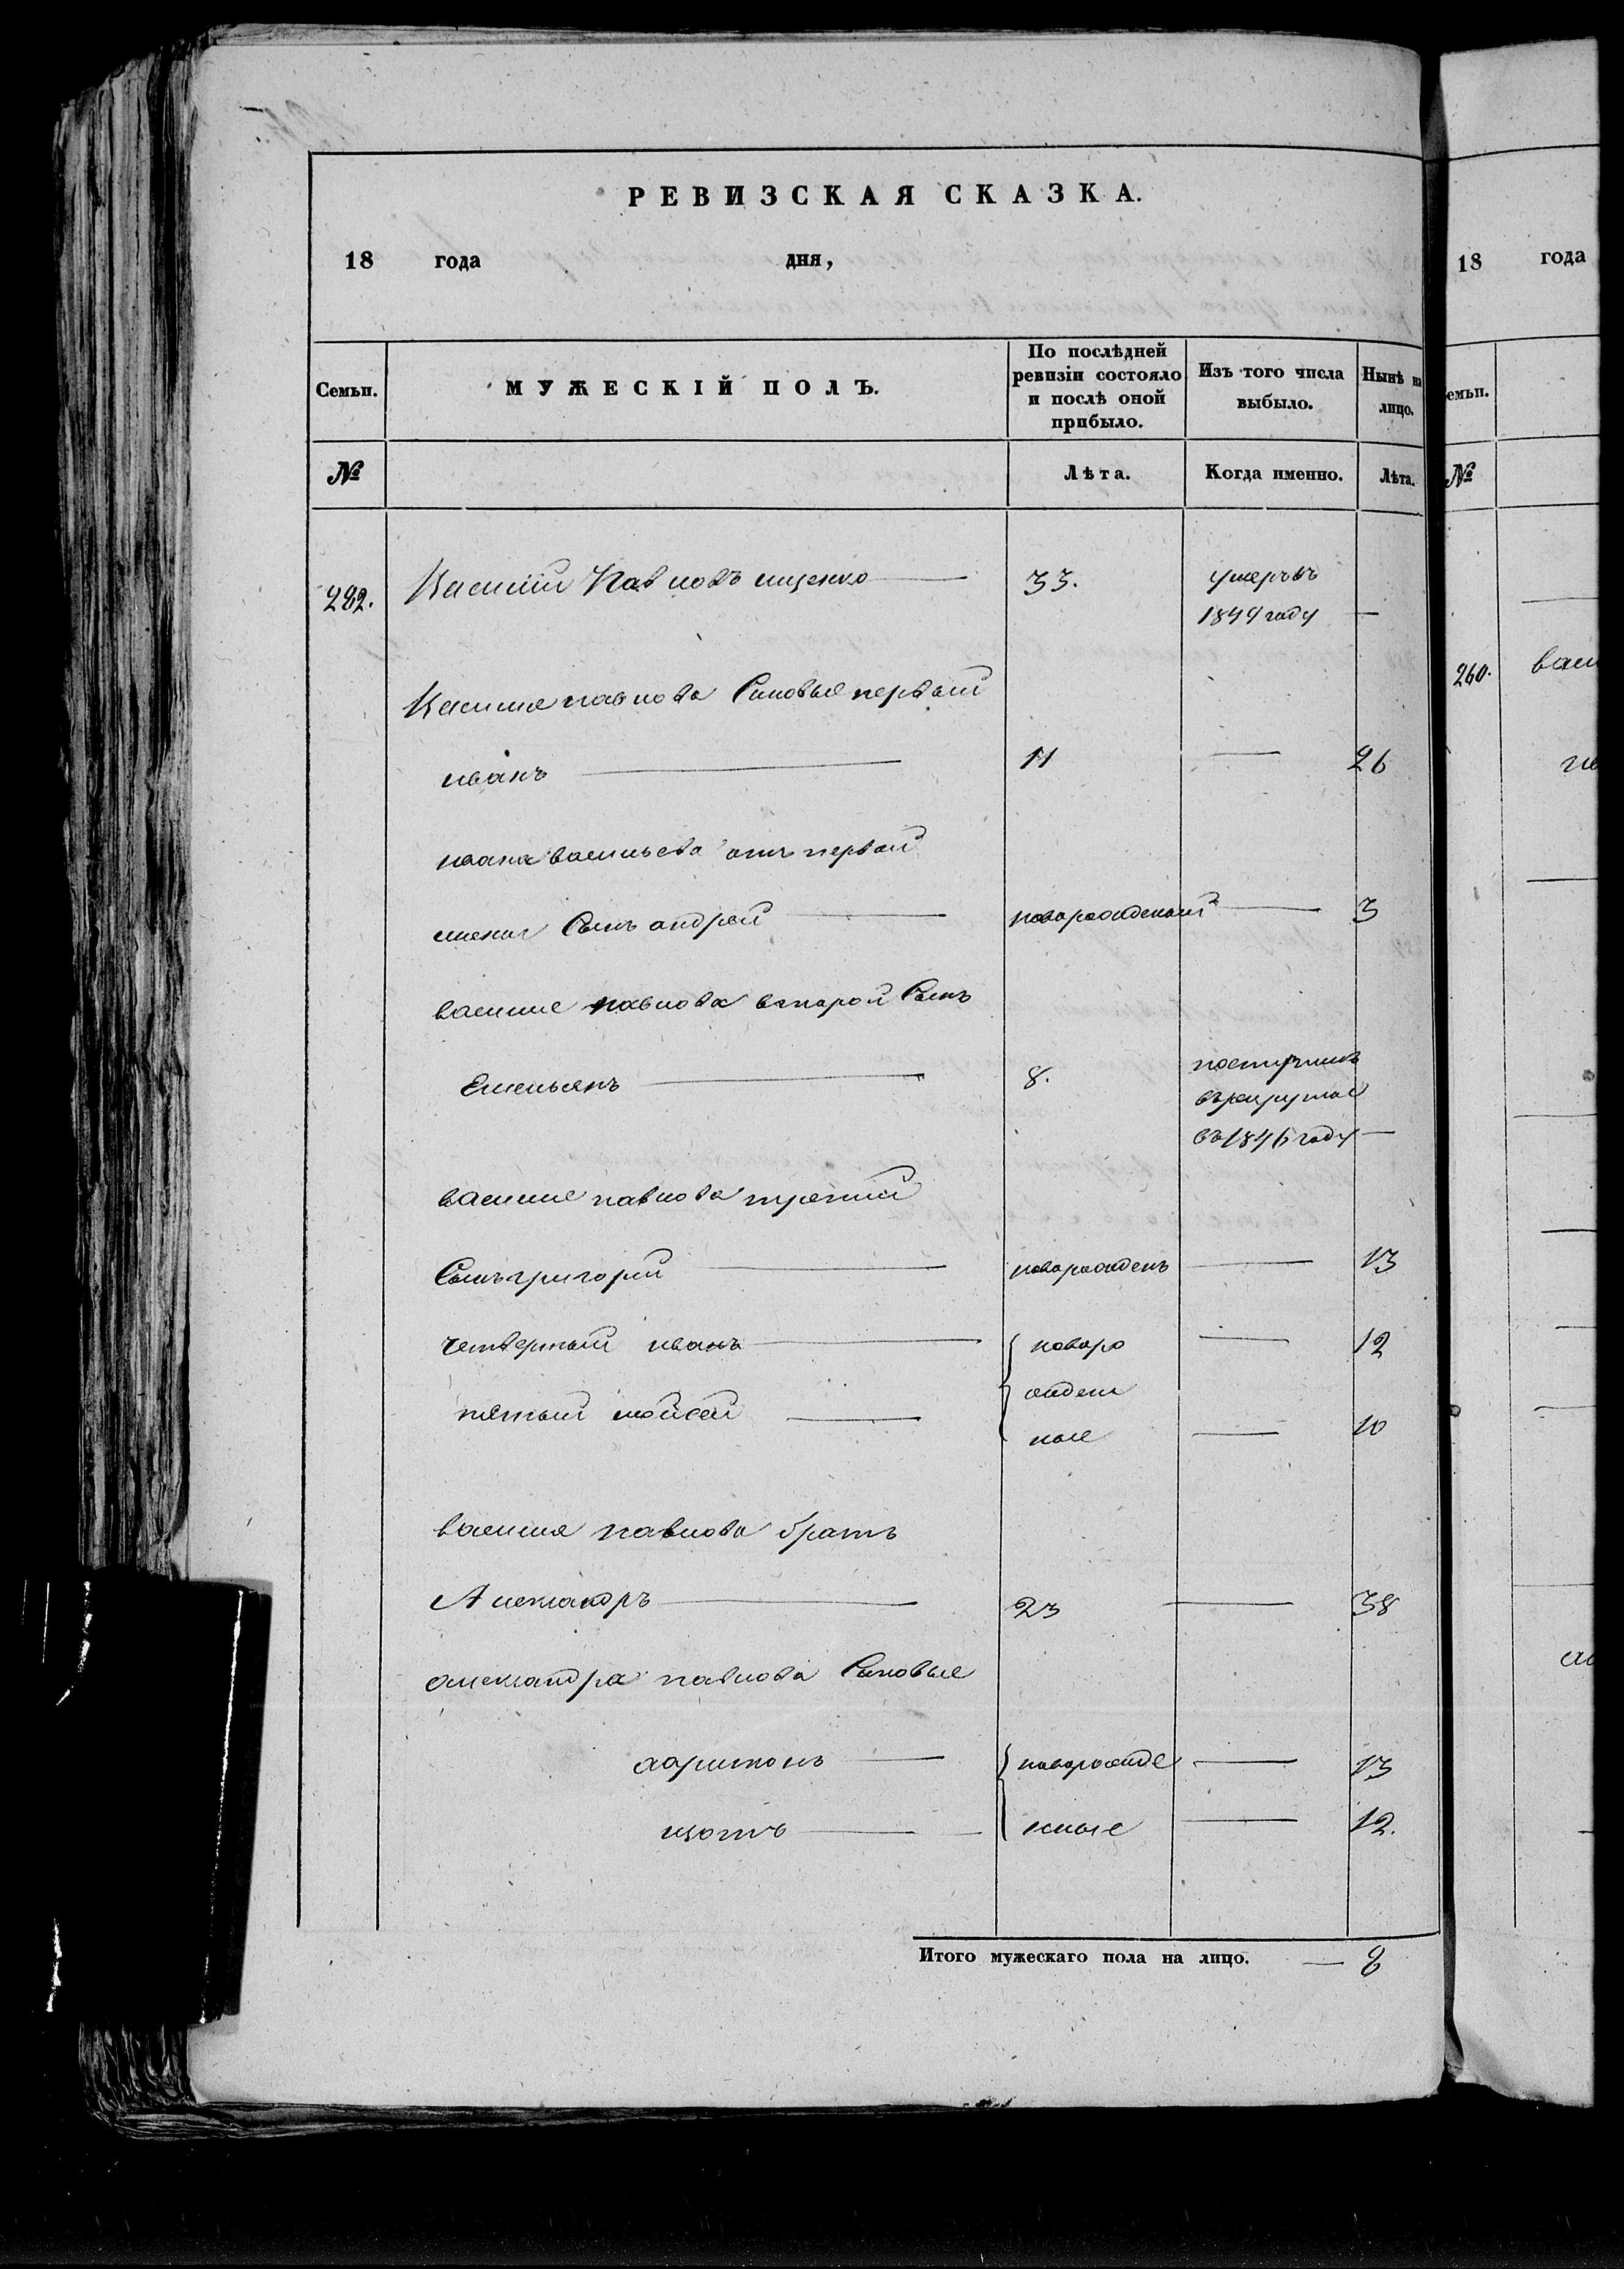 РЕВИЗСКАЯ СКАЗКА.
18 года дня,
Семьи. МУЖЕСКІЙ ПОЛЪ. По послѣдней ревизіи состояло и послѣ оной прибыло. Изъ того числа выбыло. Нынѣ на лицо.
№ Лѣта. Когда именно. Лѣта.
282. Василій Павловъ ищенко 33. умеръ въ
1849 году —
Василия павлова Сыновья первый
иванъ — 11 — 26
ивана васильева отъ первой
жены Сынъ андрей — новорожденый — 3
василия павлова второй Сынъ
Емельянъ — 8. поступилъ
въ рекруты
въ 1846 году —
василия павлова третий
Сынъ григорий — новорожденъ — 13
четвертый иванъ — новоро — 12
жден
пятый мойсей — ные — 10
василия павлова братъ
Александръ — 23 — 38
александра павлова Сыновья
харитонъ — новорожде — 13
изотъ — нные — 12.
Итого мужескаго пола на лицо. — 8
18 года
емьи.
№
260. васи